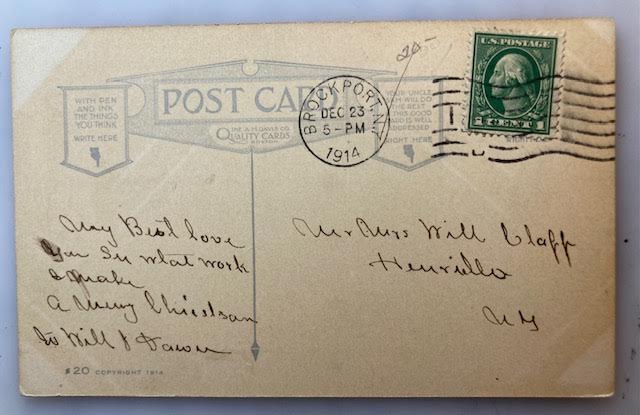 20
U.S. POSTAGE
POST CARD
WITH PEN
AND INK
THE THINGS
YOU THINK
WRITE HERE
YOUR UNCLE
SAM WILL DO
THE REST
IF THIS GOOD
CARD IS WELL
ADDRESSED
RIGHT HERE
THE A.M. DAVIS CO.
QUALITY CARDS
BOSTON
BROCKPORT, N.Y.
DEC 23
5 - PM
1914
1 CENT 1
May Best love
You See what work
I make
A Merry
to Will &
Mr Mrs Will Clapp
N Y
$20 COPYRIGHT 1914